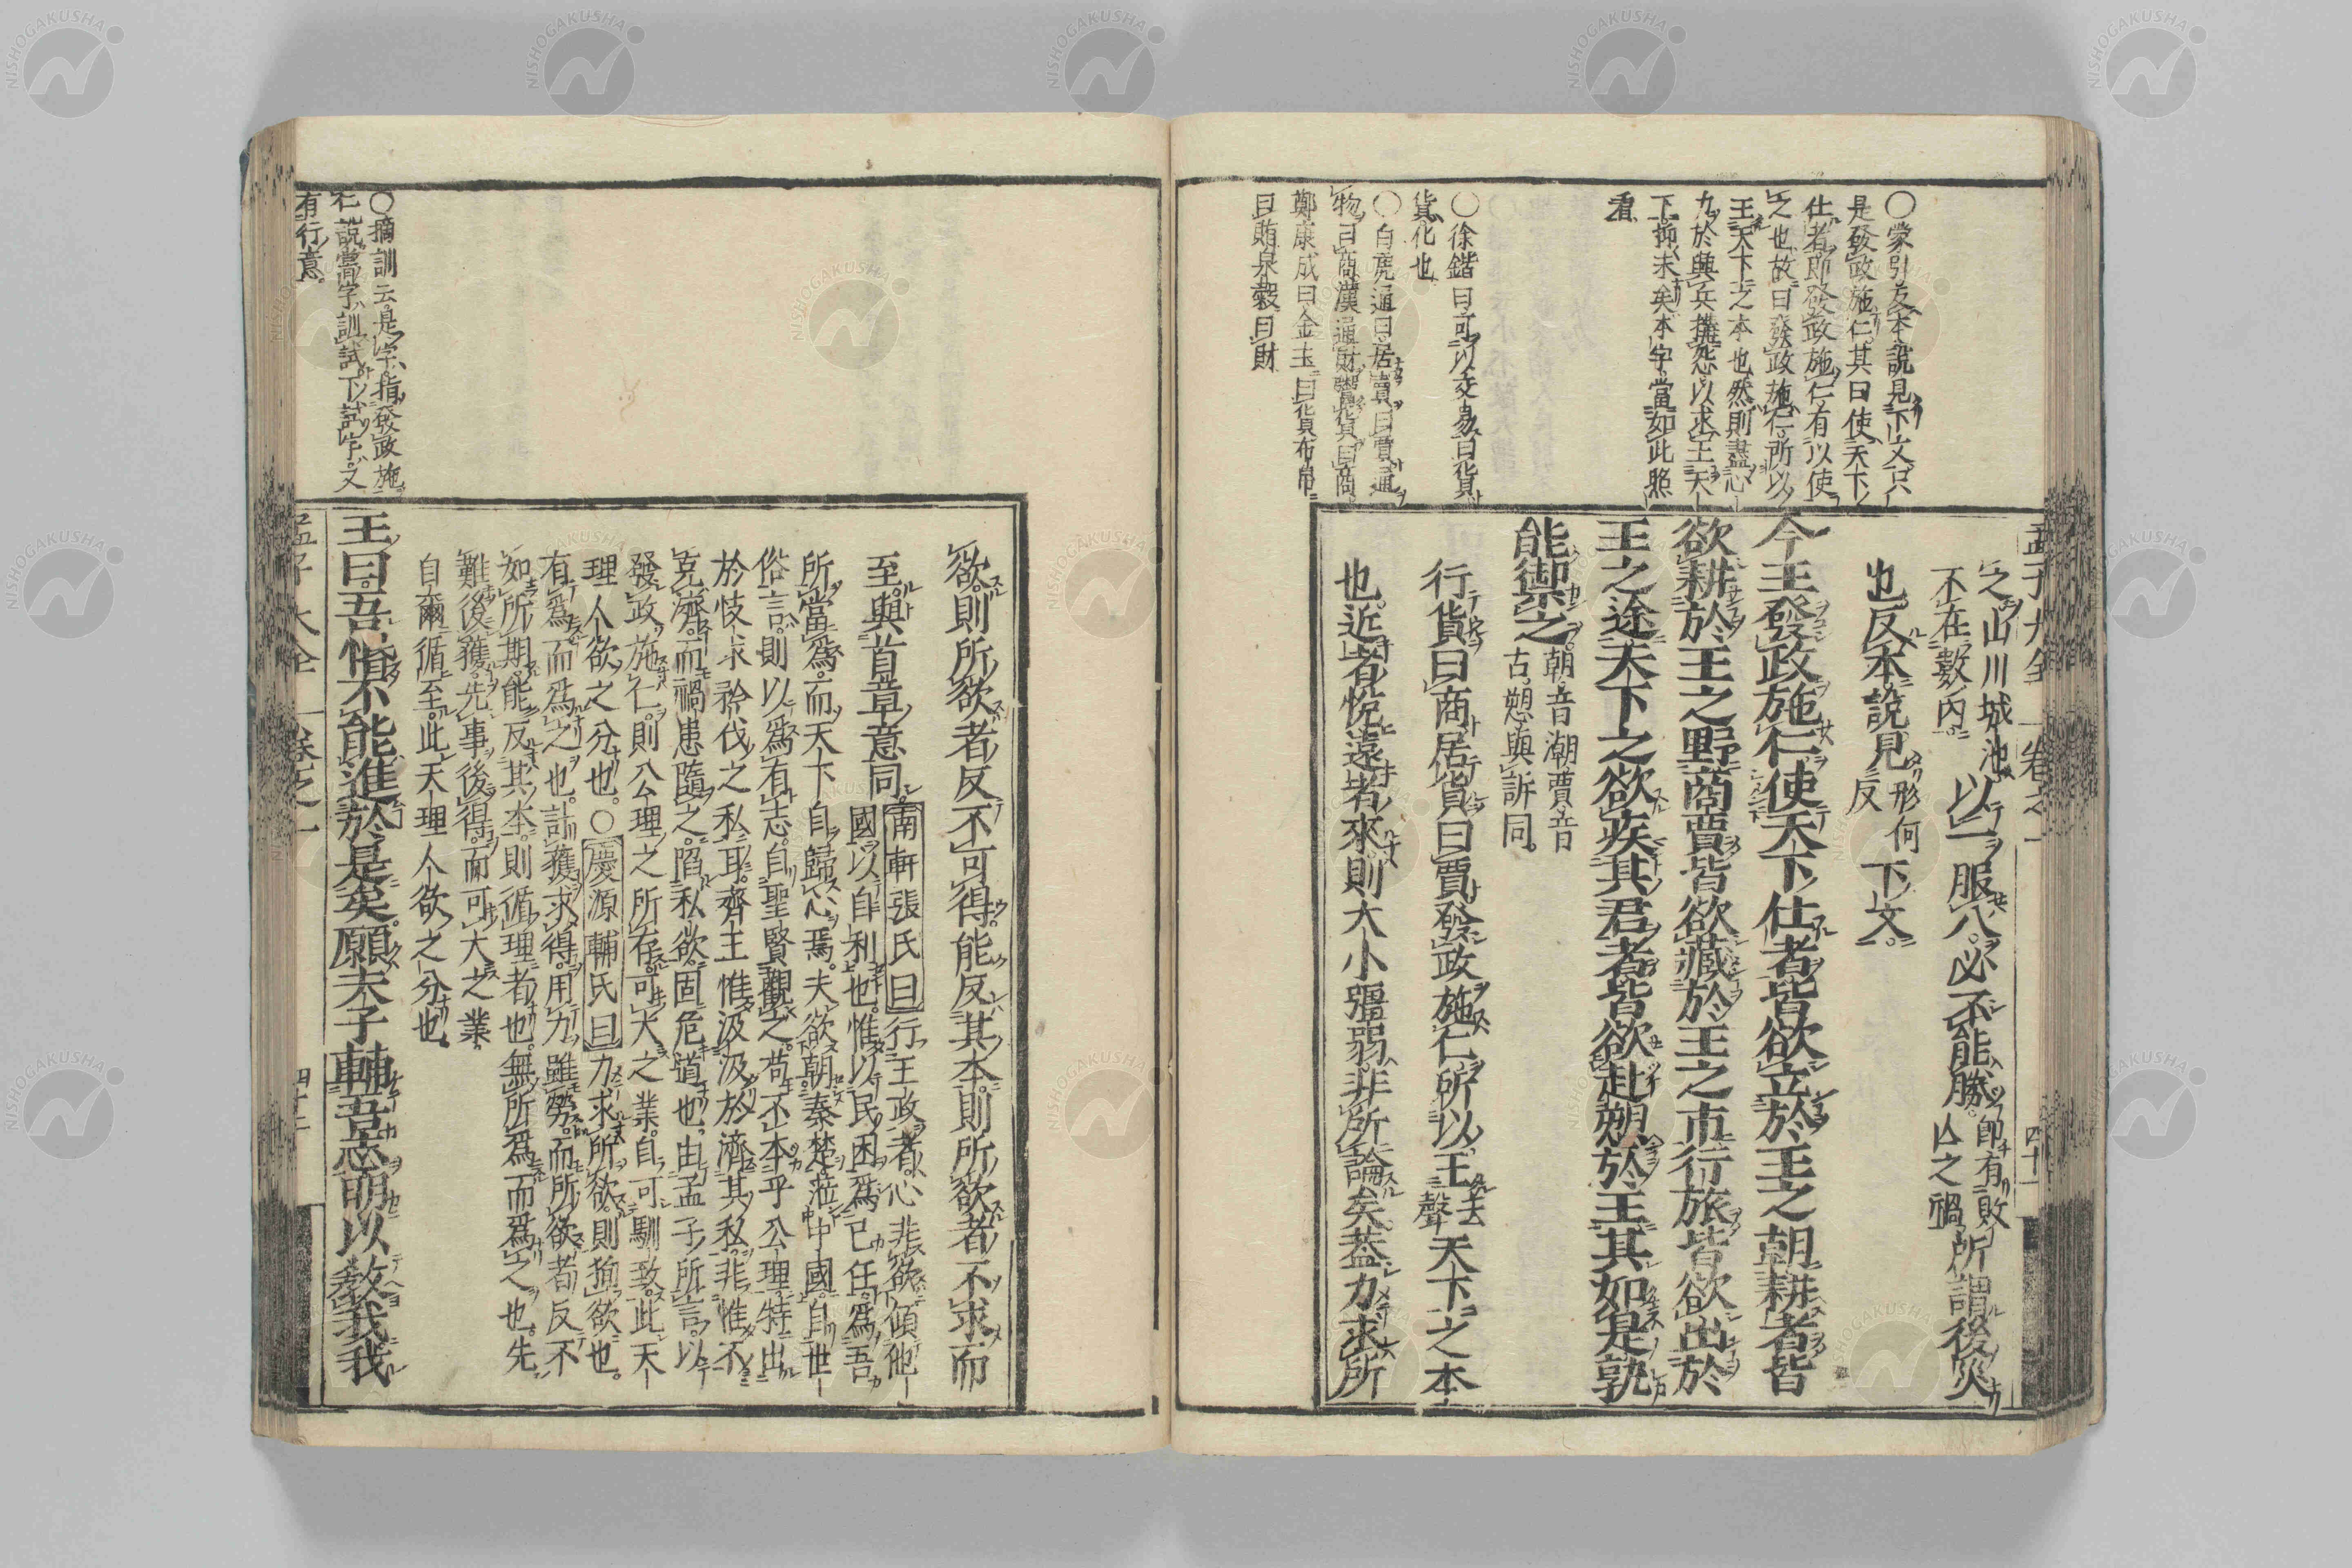 ○蒙引反本說見下文只
是發政施仁其曰使天下
仕者即發政施仁有以使
之也故曰發政施仁所以
王天下之本也然則盡心
九於興兵搆怨以求王天
下抑末矣本字當如此照
看
○徐鍇曰可以交易曰貨
貨化也
○白虎通曰居賣曰賈通
物曰商漢通財鬻貨曰商
鄭康成曰金玉曰貨布帛
曰賄泉穀曰財
孟子大全 卷之一 四十一
之山川城池
不在數內 以一服八必不能勝 即有敗
亡之禍 所謂後災
也反本說見 形何
反 下文
今王發政施仁使天下仕者皆欲立於王之朝耕者皆
欲耕於王之野商賈皆欲藏於王之市行旅皆欲出於
王之途天下之欲疾其君者皆欲赴愬於王其如是孰
能禦之 朝音潮賈音
古愬與訴同
行貨曰商居貨曰賈發政施仁所以王 去
聲 天下之本
也近者悅遠者來則大小彊弱非所論矣蓋力求所
欲則所欲者反不可得能反其本則所欲者不求而
至與首章意同 南軒張氏曰行王政者心非欲傾他
國以自利也惟以民困爲己任爲吾
所當爲而天下自歸心焉夫欲朝秦楚蒞中國自世
俗言則以爲有志自聖賢觀之苟不本乎公理特出
於忮求矜伐之私耳齊王惟汲汲於濟其私非惟不
克濟而禍患隨之陷私欲固危道也由孟子所言以
發政施仁則公理之所存可大之業自可馴致此天
理人欲之分也○慶源輔氏曰力求所欲則狥欲也
有爲而爲之也計獲求得用力雖勞而所欲者反不
如所期能反其本則循理者也無所爲而爲之也先
難後獲先事後得而可大之業
自爾循至此天理人欲之分也
王曰吾惛不能進於是矣願夫子輔吾志明以教我我
孟子大全 卷之一 四十二
○摘訓云是字指發政施
仁說嘗字訓試下以試字又
有行意